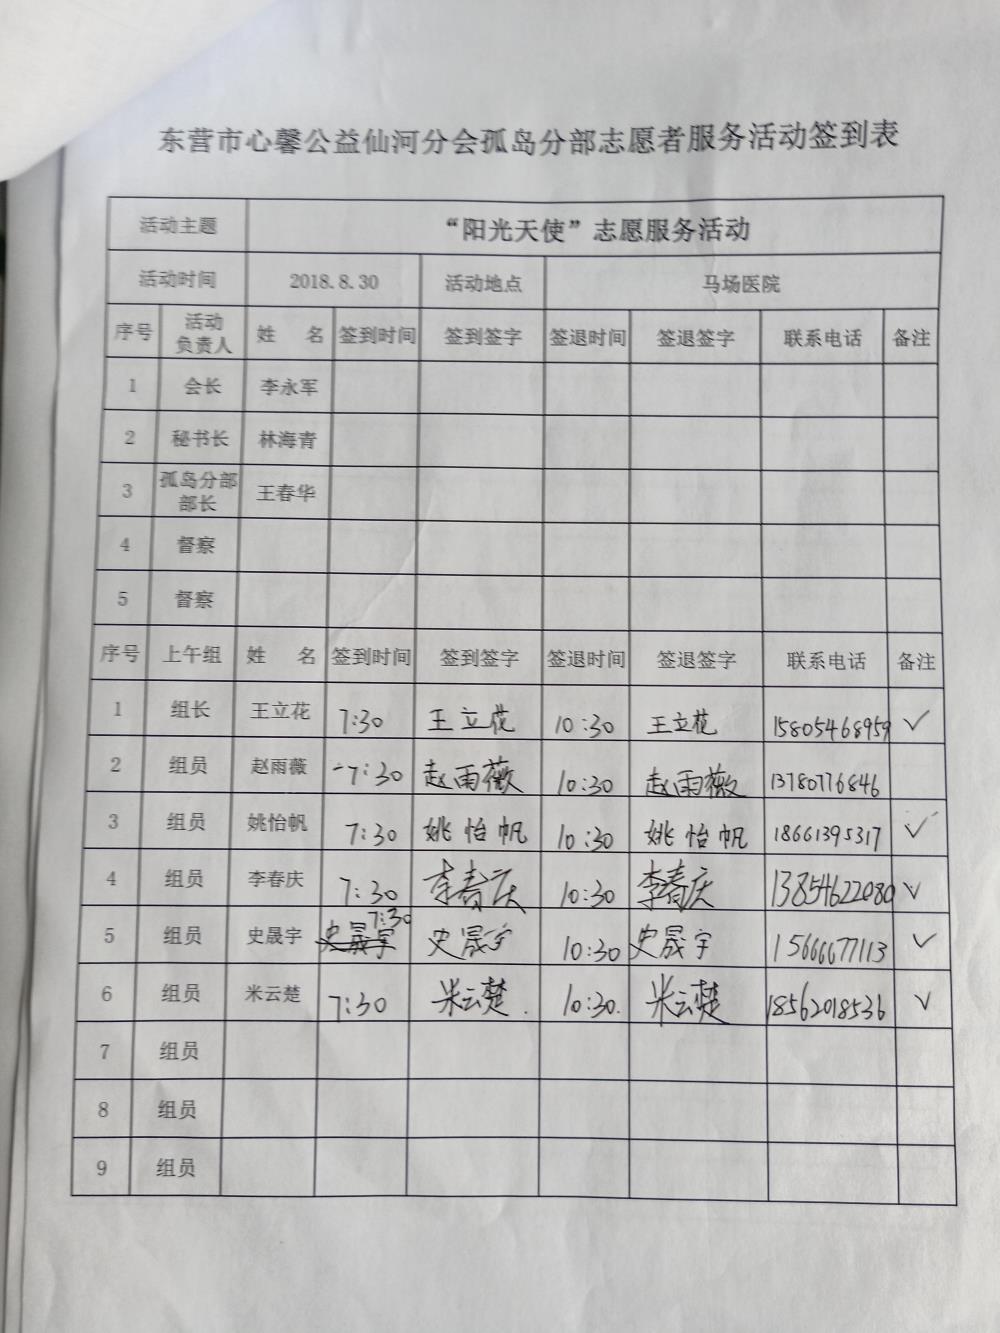 东营市心馨公益仙河分会孤岛分部志愿者服务活动签到表
活动主题 “阳光天使”志愿服务活动
活动时间 2018.8.30 活动地点 马场医院
序号 活动负责人 姓 名 签到时间 签到签字 签退时间 签退签字 联系电话 备注
1 会长 李永军
2 秘书长 林海青
3 孤岛分部部长 王春华
4 督察
5 督察
序号 上午组 姓 名 签到时间 签到签字 签退时间 签退签字 联系电话 备注
1 组长 王立花 7:30 王立花 10:30 王立花 15805468959 ✓
2 组员 赵雨薇 7:30 赵雨薇 10:30 赵雨薇 13780776846
3 组员 姚怡帆 7:30 姚怡帆 10:30 姚怡帆 18661395317 ✓
4 组员 李春庆 7:30 李春庆 10:30 李春庆 13854622080 ✓
5 组员 史晟宇 7:30 史晟宇 10:30 史晟宇 15666677113 ✓
6 组员 米云楚 7:30 米云楚. 10:30. 米云楚 18562018536 ✓
7 组员
8 组员
9 组员